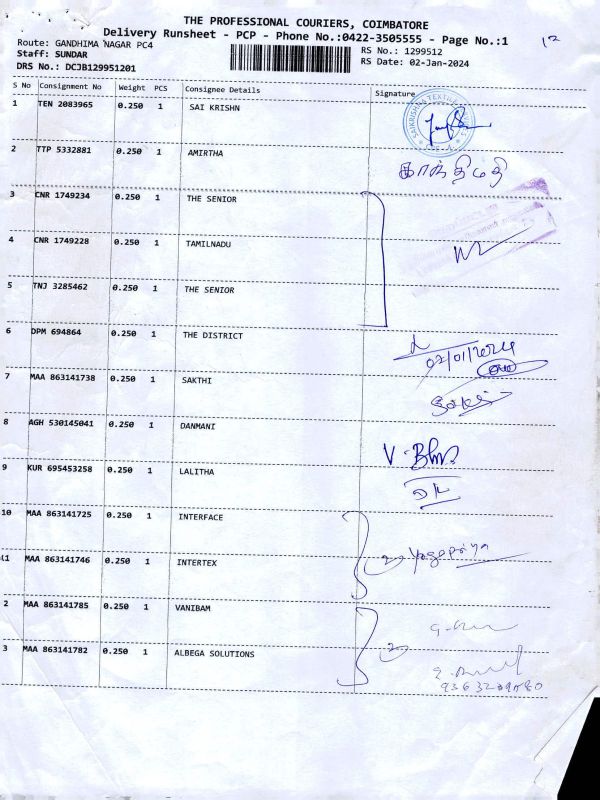 THE PROFESSIONAL COURIERS, COIMBATORE
Delivery Runsheet - PCP - Phone No.:0422-3505555 - Page No.:1
12
Route: GANDHIMA NAGAR PC4
RS No.: 1299512
Staff: SUNDAR
RS Date: 02-Jan-2024
DRS No.: DCJB129951201
S No Consignment No Weight PCS Consignee Details Signature
1 TEN 2083965 0.250 1 SAI KRISHN
2 TTP 5332881 0.250 1 AMIRTHA
காந்திமதி
3 CNR 1749234 0.250 1 THE SENIOR
4 CNR 1749228 0.250 1 TAMILNADU
5 TNJ 3285462 0.250 1 THE SENIOR
6 DPM 694864 0.250 1 THE DISTRICT
02/01/2024
7 MAA 863141738 0.250 1 SAKTHI
8 AGH 530145041 0.250 1 DANMANI
9 KUR 695453258 0.250 1 LALITHA
10 MAA 863141725 0.250 1 INTERFACE
2 Yagapriya
11 MAA 863141746 0.250 1 INTERTEX
2 MAA 863141785 0.250 1 VANIBAM
2
3 MAA 863141782 0.250 1 ALBEGA SOLUTIONS